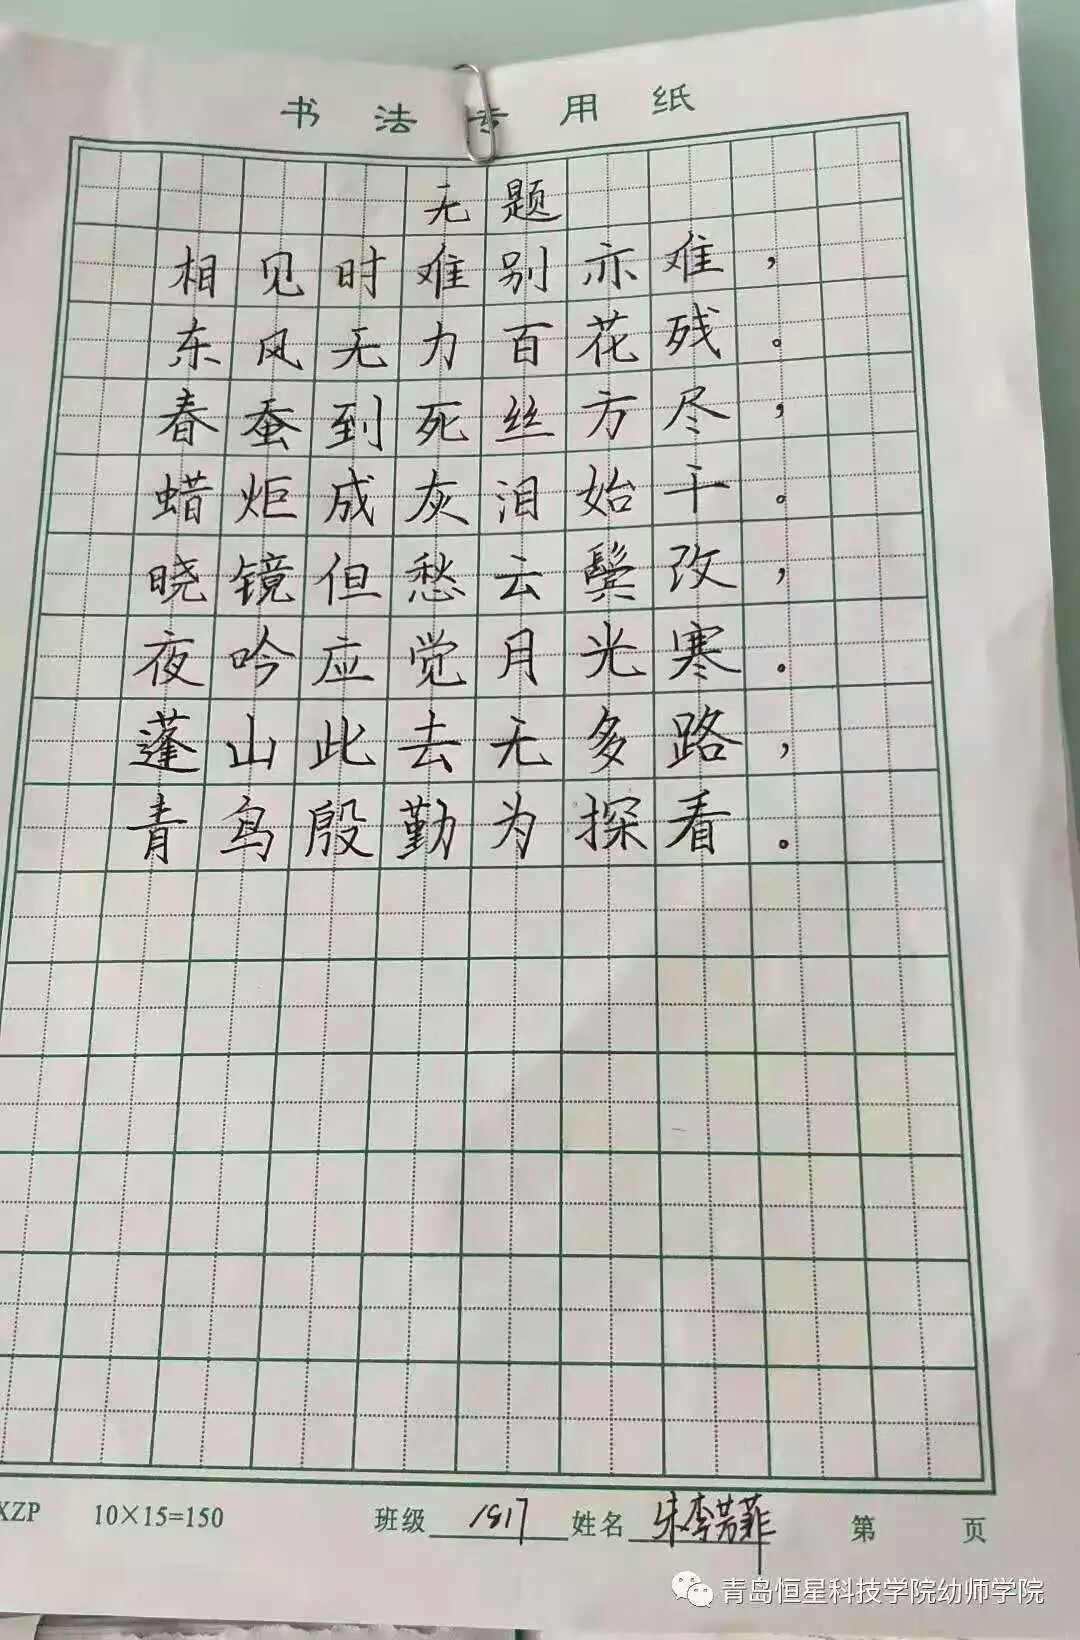 书法专用纸
无题
相见时难别亦难，
东风无力百花残。
春蚕到死丝方尽，
蜡炬成灰泪始干。
晓镜但愁云鬓改，
夜吟应觉月光寒。
蓬山此去无多路，
青鸟殷勤为探看。
XZP 10×15=150 班级 1817 姓名 朱李芳菲 第 页
青岛恒星科技学院幼师学院